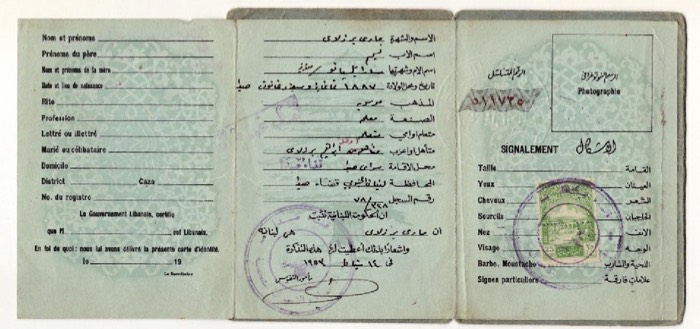 Nom et prénome
Prénome du père
Nom et prénome de la mère
Date et lieu de naissance
Rite
Profession
Lettré ou illettré
Marié ou célibataire
Domicile
District Caza
No. du registre
Le Gouvernement Libanais, certifie
que M. est Libanais.
En foi de quoi: nous lui avons délivré la présente carte d'identité.
le 19
Le Secrétaire
الاسم والشهرة ماري برزلاي
اسم الاب
اسم الام وشهرتها
تاريخ ومحل الولادة ١٨٨٧ صيدا
المذهب موسوية
الصنعة معلمة
متعلم او امي متعلمة
متأهل او اعزب
محل الاقامة صيدا
المحافظة لبنان الجنوبي قضاء صيدا
رقم السجل ٧٨/
ان الحكومة اللبنانية تثبت
ان ماري برزلاي هي لبنانية
واشعاراً بذلك أعطيت له هذه التذكرة
في ١٤ شباط ١٩٥٣
مأمور النفوس
الرقم المتسلسل
٥١١٧٣٥
Photographie
الاشكال
SIGNALEMENT
Taille القامة
Yeux العينان
Cheveux الشعر
Sourcils الحاجبان
Nez الانف
Visage الوجه
Barbe, Moustache اللحية والشارب
Signes particuliers علامات فارقة